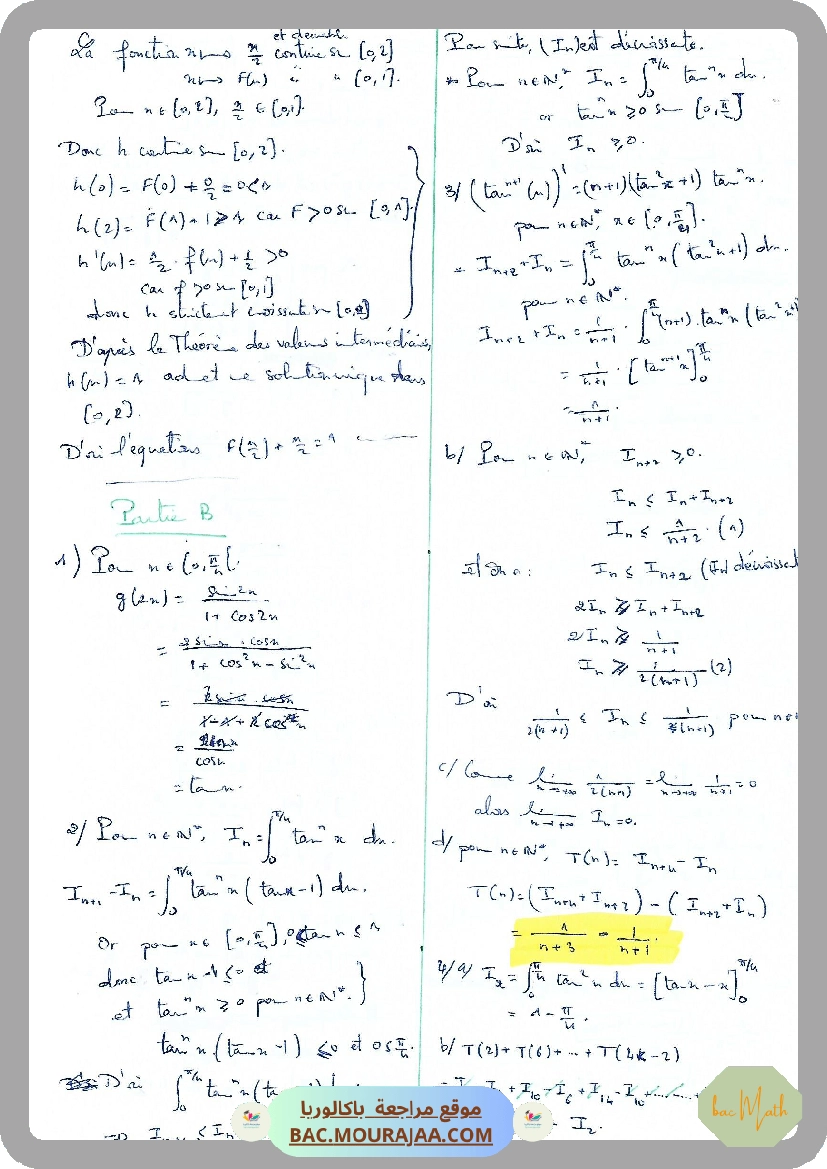 La fonction x ↦ x/2 continue et dérivable sur [0,2]
x ↦ F(x) " " " [0,1].
Pour x ∈ [0,2], x/2 ∈ [0,1].
Donc h continue sur [0,2].
h(0) = F(0) + 0/2 = 0 < 1
h(2) = F(1) + 1 > 1 car F > 0 sur [0,1].
h'(x) = 1/2 · f(x) + 1/2 > 0
car f > 0 sur [0,1]
donc h strictement croissante sur [0,2]
D'après le Théorème des valeurs intermédiaires,
h(x) = 1 admet une solution unique dans
[0,2].
D'où l'equation F(x/2) + x/2 = 1
Partie B
1) Pour x ∈ [0, π/4[.
g(2x) = sin 2x / (1 + cos 2x)
= 2 sin x · cos x / (1 + cos²x − sin²x)
= 2 sin x · cos x / (1 − 1 + 2 cos²x)
= sin x / cos x
= tan x.
2/ Pour n ∈ ℕ*, Iₙ = ∫₀^{π/4} tanⁿ x dx.
Iₙ₊₁ − Iₙ = ∫₀^{π/4} tanⁿ x (tan x − 1) dx.
Or pour x ∈ [0, π/4], 0 ≤ tan x ≤ 1
donc tan x − 1 ≤ 0 et
et tanⁿ x ≥ 0 pour n ∈ ℕ*.
tanⁿ x (tan x − 1) ≤ 0 et 0 ≤ π/4.
D'où ∫₀^{π/4} tanⁿ x (
≤ Iₙ
Par suite, (Iₙ) est décroissante.
* Pour n ∈ ℕ*, Iₙ = ∫₀^{π/4} tanⁿ x dx.
or tanⁿ x ≥ 0 sur [0, π/4]
D'où Iₙ ≥ 0.
3/ (tanⁿ⁺¹(x))' = (n+1)(tan²x + 1) tanⁿ x.
pour n ∈ ℕ*, x ∈ [0, π/4].
Iₙ₊₂ + Iₙ = ∫₀^{π/4} tanⁿ x (tan²x + 1) dx.
pour n ∈ ℕ*.
Iₙ₊₂ + Iₙ = 1/(n+1) · ∫₀^{π/4} (n+1) · tanⁿ x (tan²
= 1/(n+1) · [tanⁿ⁺¹ x]₀^{π/4}
= 1/(n+1).
b/ Pour n ∈ ℕ*, Iₙ₊₂ ≥ 0.
Iₙ ≤ Iₙ + Iₙ₊₂
Iₙ ≤ 1/(n+2) · (1)
et on a : Iₙ ≤ Iₙ₊₂ (Iₙ décroissant
2Iₙ ≥ Iₙ + Iₙ₊₂
2Iₙ ≥ 1/(n+1)
Iₙ ≥ 1/(2(n+1)) (2)
D'où
1/(2(n+1)) ≤ Iₙ ≤ 1/(n+1) pour n ∈
c/ Comme lim n→+∞ 1/(2(n+1)) = lim n→+∞ 1/(n+1) = 0
alors lim n→+∞ Iₙ = 0.
d/ pour n ∈ ℕ*, T(n) = Iₙ₊₄ − Iₙ
T(n) = (Iₙ₊₄ + Iₙ₊₂) − (Iₙ₊₂ + Iₙ)
= 1/(n+3) − 1/(n+1).
4/ a/ I₂ = ∫₀^{π/4} tan² x dx = [tan x − x]₀^{π/4}
= 1 − π/4.
b/ T(2) + T(6) + ... + T(4k − 2)
+ I₁₀ − I₆ + I₁₄ − I₁₀ + ......
− I₂.
موقع مراجعة باكالوريا
BAC.MOURAJAA.COM
bac Math